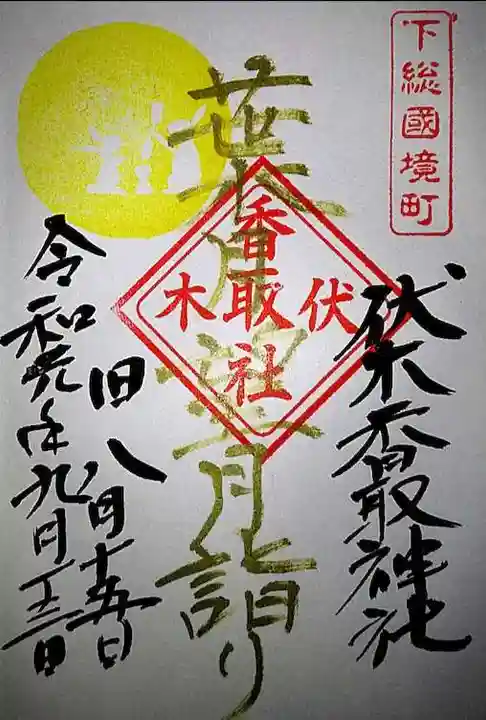 下総國境町
伏木香取神社
葉月
月詣り
伏木
香取社
旧八月十五日
令和元年九月十三日